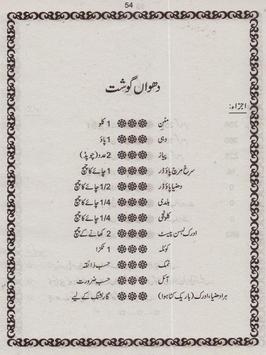 54
دھواں گوشت
اجزاء:
مٹن ❋❋❋ 1 کلو
دہی ❋❋❋ 1 پاؤ
پیاز ❋❋❋ 2 عدد (چوپڈ)
سرخ مرچ پاؤڈر ❋❋❋ 1 چائے کا چمچ
دھنیا پاؤڈر ❋❋❋ 1/2 چائے کا چمچ
ہلدی ❋❋❋ 1/4 چائے کا چمچ
کلونجی ❋❋❋ 1/4 چائے کا چمچ
ادرک لہسن پیسٹ ❋❋❋ 2 کھانے کے چمچ
کوئلہ ❋❋❋ 1 ٹکڑا
نمک ❋❋❋ حسب ذائقہ
آئل ❋❋❋ حسب ضرورت
ہرا دھنیا، ادرک (باریک کٹا ہوا) ❋❋❋ گارنشنگ کے لیے